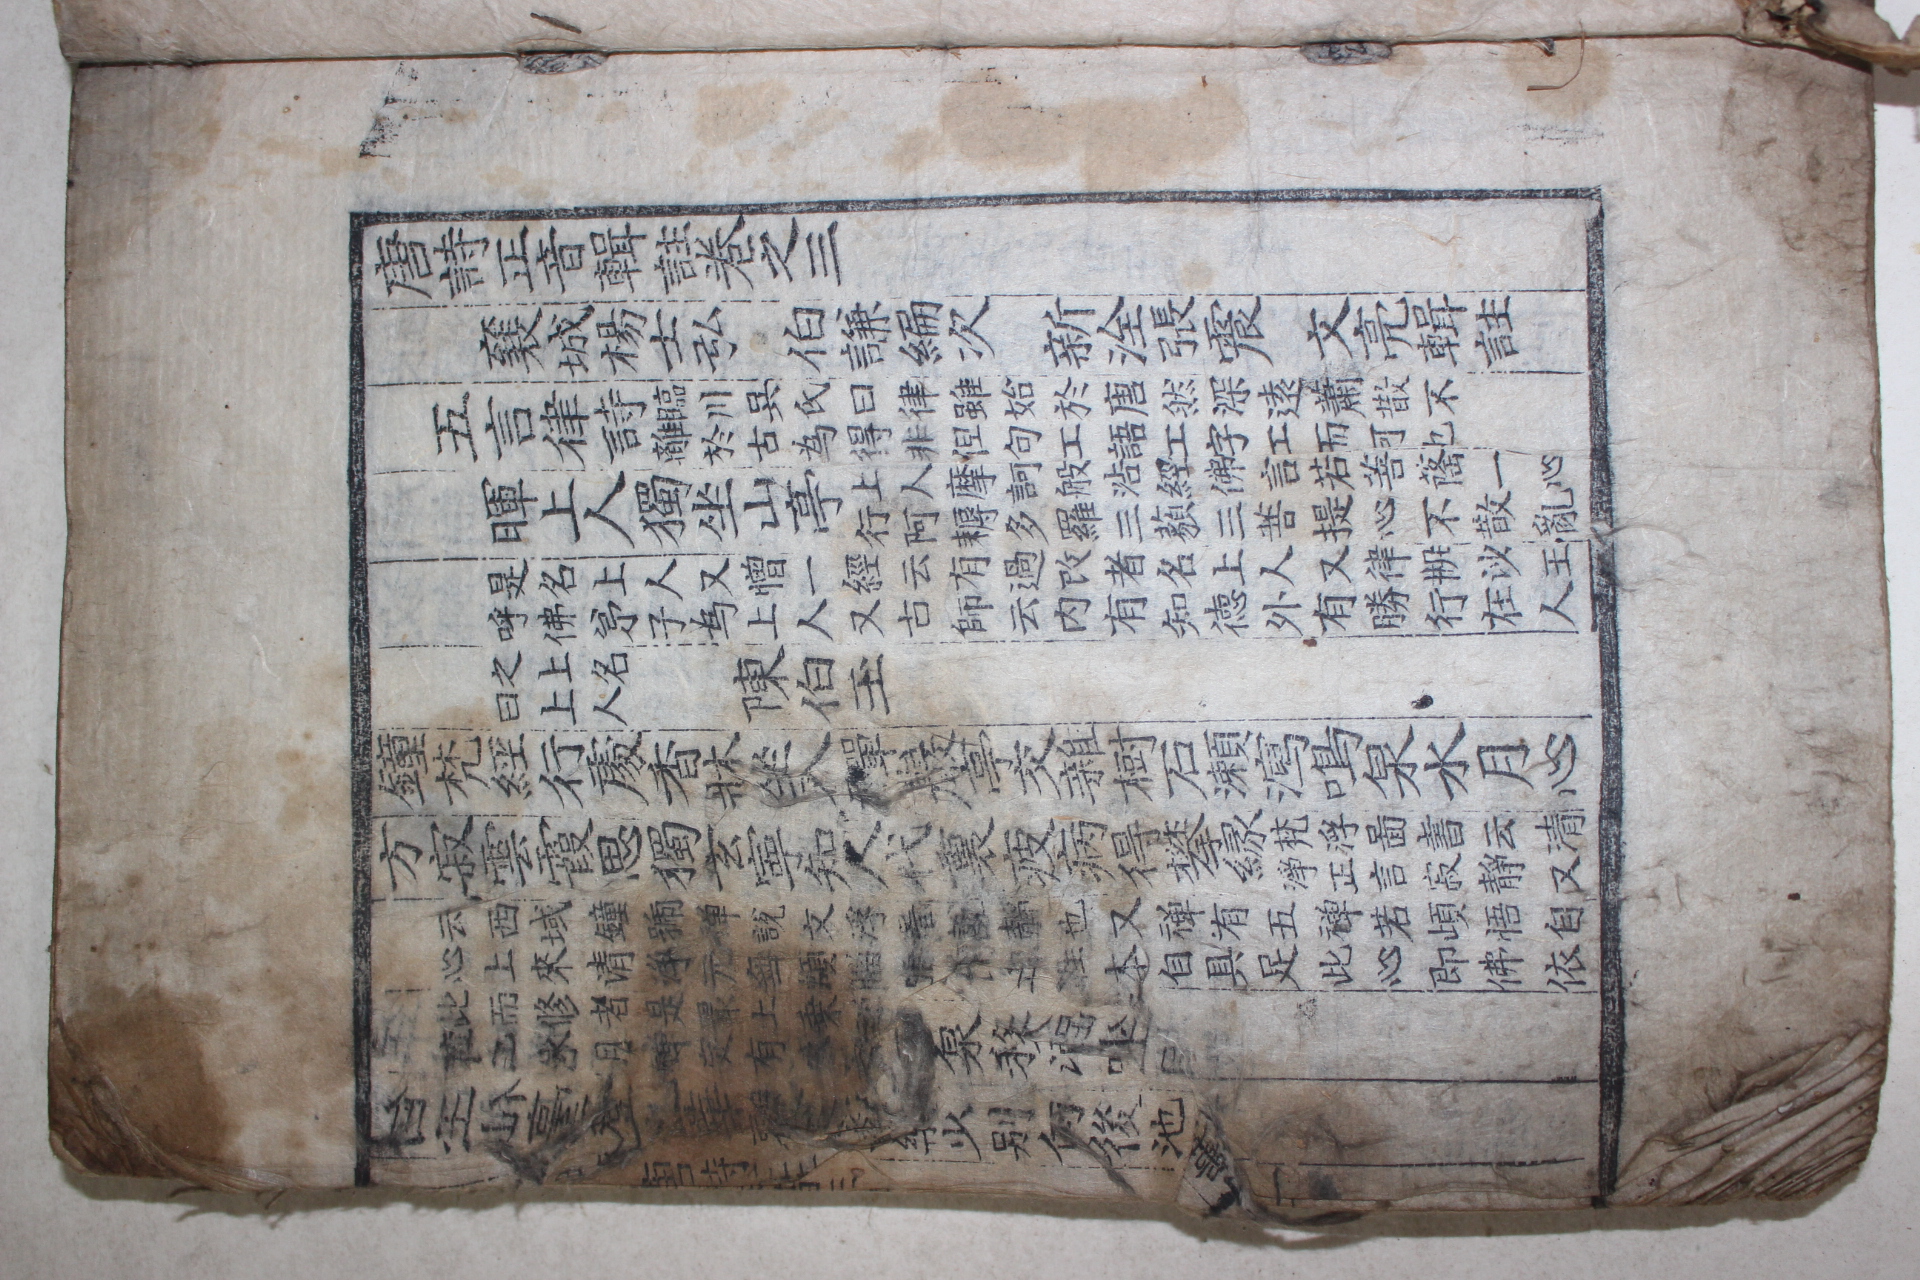 唐詩正音輯註卷之三
襄城楊士弘 伯謙編次 新淦張震 文亮輯註
五言律詩
臨川吳氏曰律雖始於唐然深遠蕭散不
離於古為得非但句工語工字工而可也
暉上人獨坐山亭
上人摩訶般沾經佛言若菩薩一心
行阿耨多羅三藐三菩提心不散亂
是名上人又憎一經云有過改者名上人又律冊沙王
呼佛弟子為上人又古師云内有知德外有勝行在人
之上名
曰上人
陳伯玉
鐘梵經行處香牀坐入禪巖亭交雜樹石瀨瀉鳴泉水月心
方寂雲霞思獨玄寧知人代裏疲病得攀緣
梵浮啚書云清
淨正言寂靜又
云西域鐘號禪說文浮啚 靜也又禪有五禪若頓悟自
心上來清淨元無煩惱 本自具足此心即佛依
此而修者是最上乗
水月禪定有
泉移酒
少别何後池
唐詩 三
一